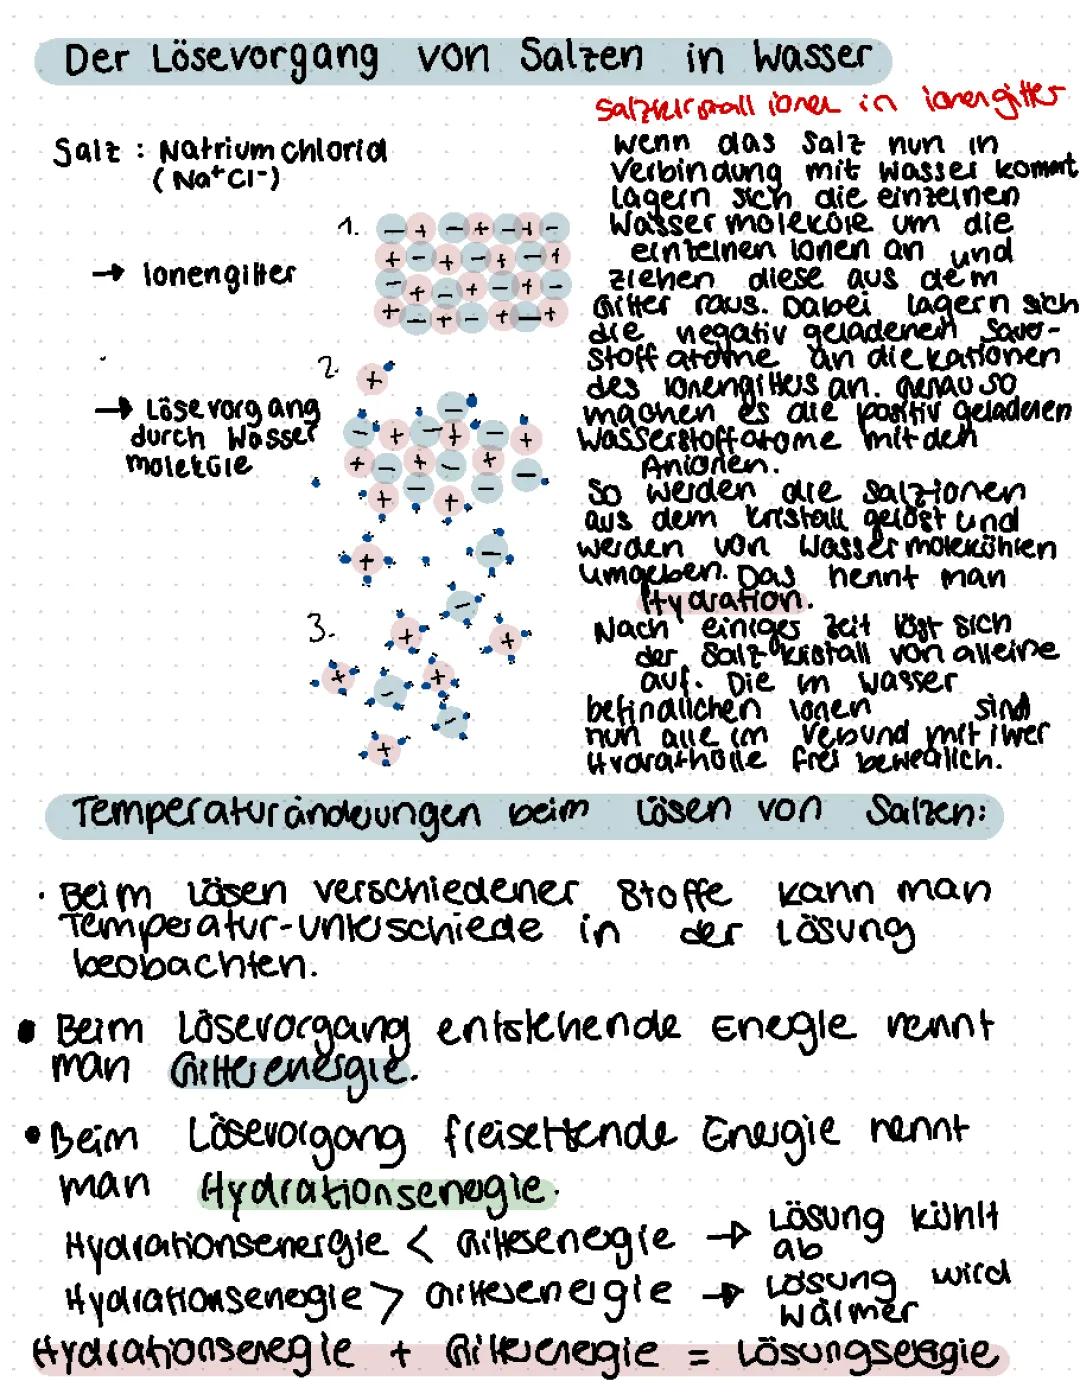 Der Lösevorgang von Salzen in Wasser
Salz : Natriumchlorid
(Na⁺Cl⁻)
1.
→ Ionengitter
2.
→ Lösevorgang
durch Wasser
moleküle
3.
Salzkristall ionen in ionengitter
wenn das Salz nun in
Verbindung mit Wasser kommt
lagern sich die einzelnen
Wassermoleküle um die
einzelnen Ionen an und
ziehen diese aus dem
Gitter raus. Dabei lagern sich
die negativ geladenen Sauer-
stoffatome an die Kationen
des Ionengitters an. genau so
machen es die positiv geladenen
Wasserstoffatome mit den
Anionen.
So werden die Salzionen
aus dem Kristall gelöst und
werden von Wassermolekühlen
umgeben. Das nennt man
Hydration.
Nach einiger Zeit löst sich
der Salzkristall von alleine
auf. Die im Wasser
befindlichen Ionen sind
nun alle im Verbund mit iwer
Hydrathülle frei beweglich.
Temperaturänderungen beim Lösen von Salzen:
· Beim Lösen verschiedener Stoffe kann man
Temperatur-unterschiede in der Lösung
beobachten.
• Beim Lösevorgang entstehende Energie nennt
man Gitterenergie.
• Beim Lösevorgang freisettende Energie nennt
man Hydrationsenergie.
Hydrationsenergie < Gitterenergie → Lösung kühlt
ab
Hydrationsenergie > Gitterenergie → Lösung wird
wärmer
Hydrationsenergie + Gitterenergie = Lösungsenergie